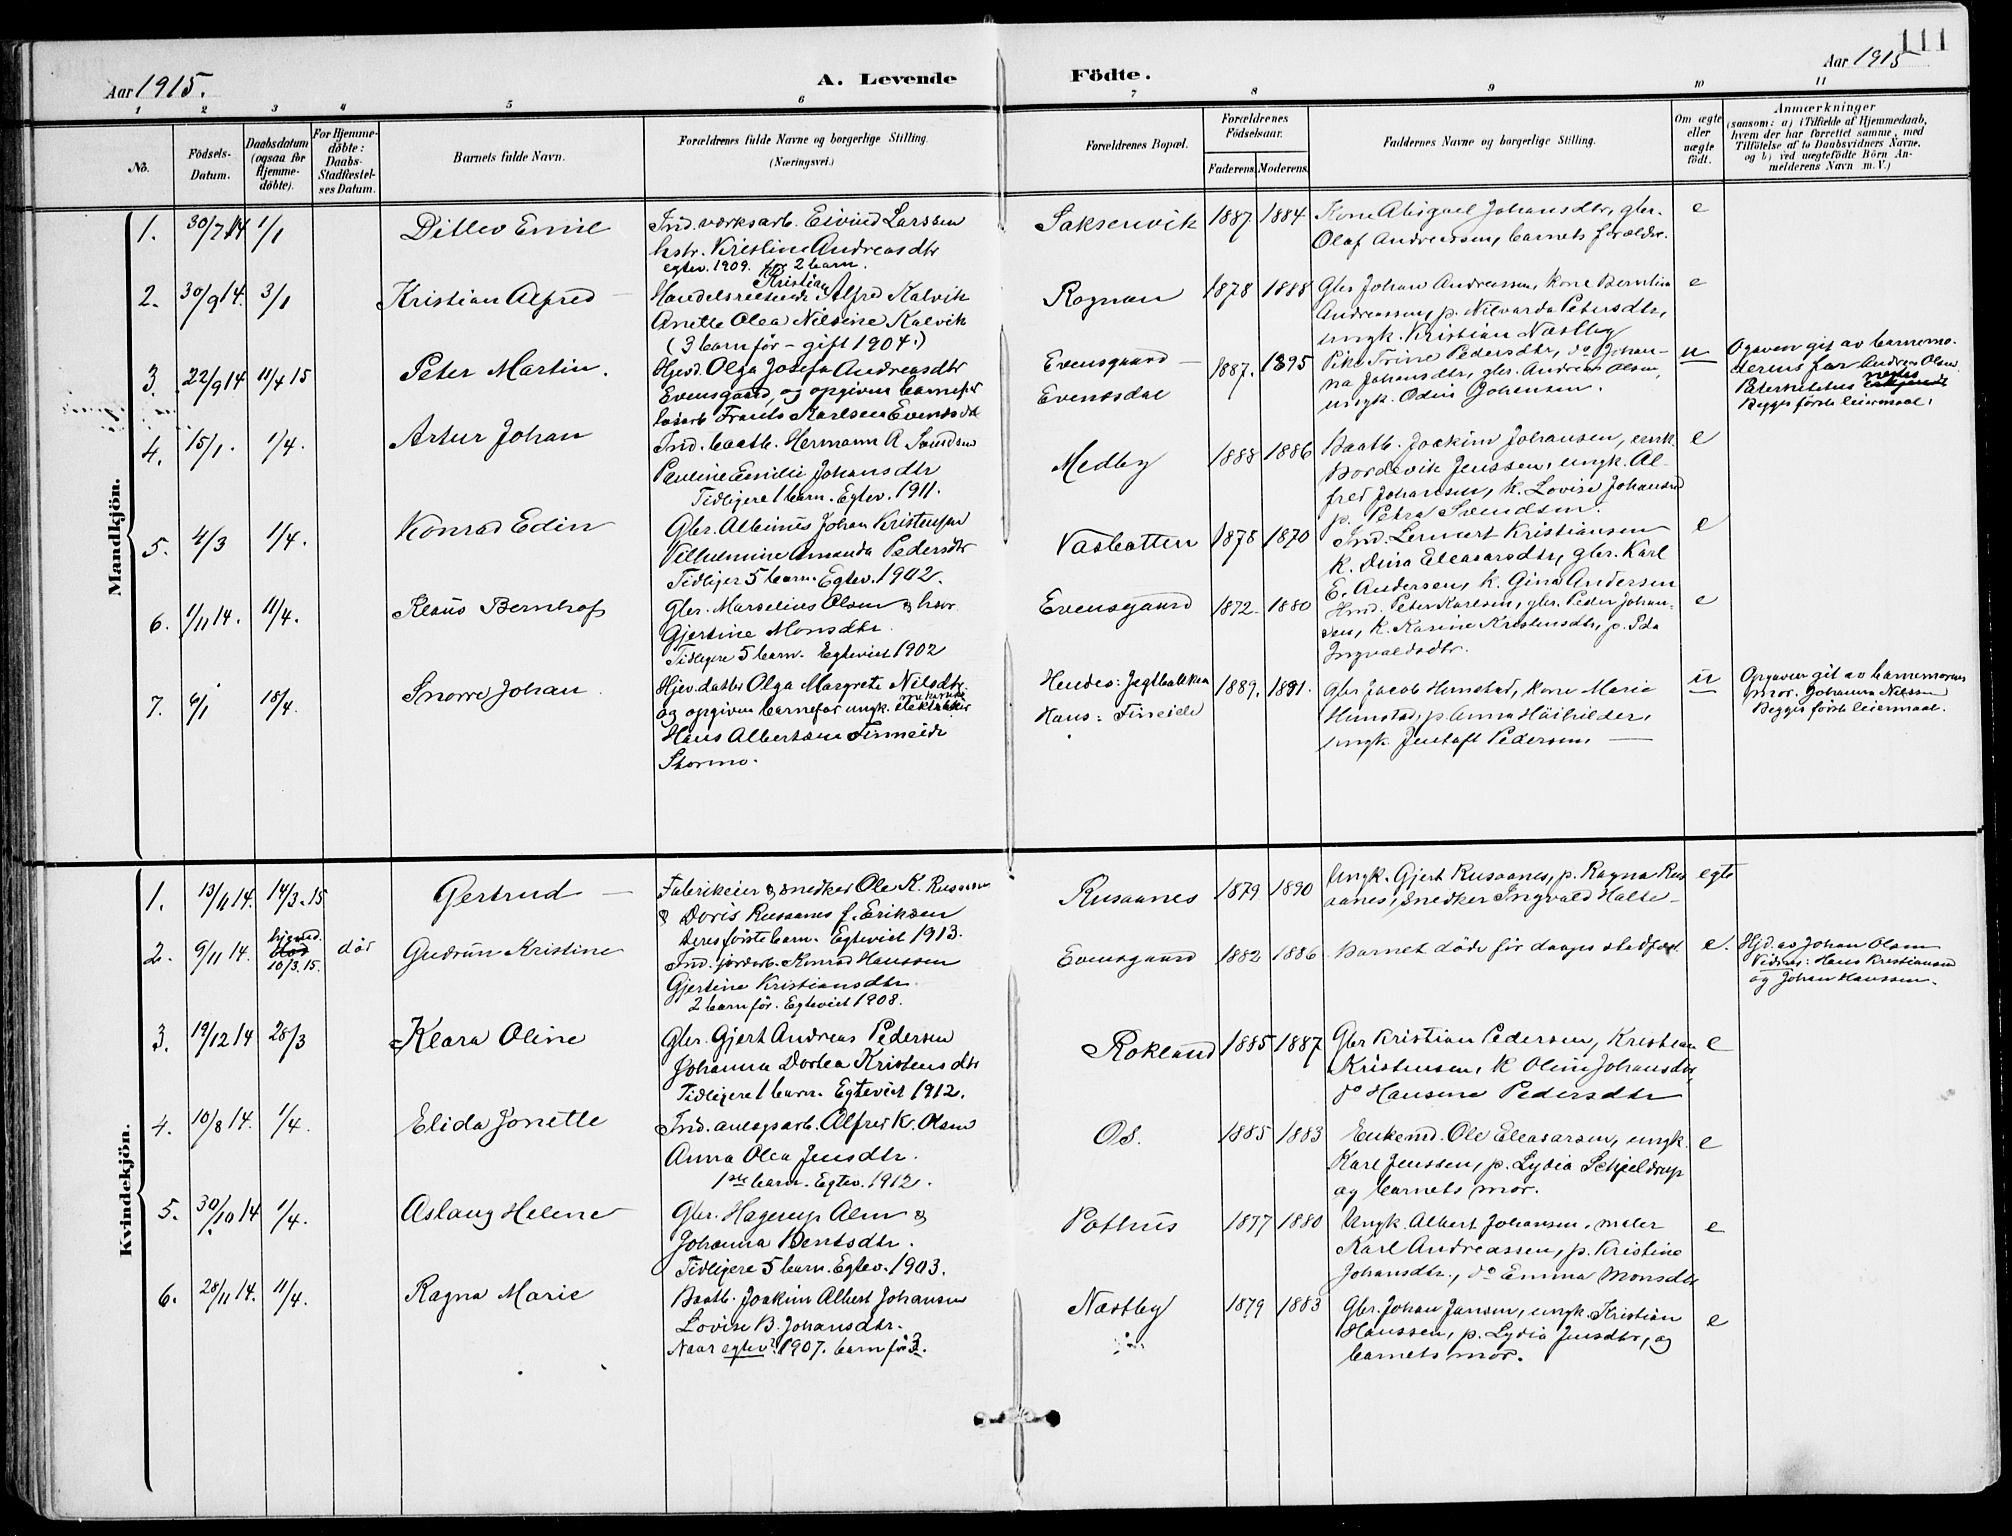 111
Aar 1915.
A. Levende Födte.
Aar 1915
1 2 3 4 5 6 7 8 9 10 11
No.
Födsels-Datum.
Daabsdatum (ogsaa for Hjemmedöbte).
For Hjemmedöbte: Daabs-Stadfæstelses Datum.
Barnets fulde Navn.
Forældrenes fulde Navne og borgerlige Stilling.
(Næringsvei.)
Forældrenes Bopæl.
Forældrenes Födselsaar.
Faderens. Moderens.
Faddernes Navne og borgerlige Stilling.
Om ægte eller uægte födt.
Anmærkninger
(saasom: a) i Tilfælde af Hjemmedaab,
hvem der har forrettet samme, med
Tilföielse af to Daabsvidners Navne,
og b) ved uægtefödte Börn Anmelderens Navn m.V.)
Mandkjön.
1. 30/7 14 1/1 Ditlev Emil
Ind. værksarb. Eivind Larssen
hstr. Kristine Andreasdtr
egtev. 1909. før 2 barn.
Saksenvik 1887 1884
Kone Abigael Johansdtr, gbr.
Olaf Andreassen, barnets forældre.
e
2. 30/9 14. 3/1 Kristian Alfred
Kristian
Handelsreisende Alfred Kalvik
Anette Olea Nilsine Kalvik
(3 barn før - gift 1904.)
Rognan 1878 1888
Gbr Johan Andreassen, kone Berntine
Andreassen, p. Nilvarda Petersdtr,
ungk. Kristian Næstby
e
3. 22/9 14 11/4 15 Peter Martin.
Hjvd. Olga Josefa Andreasdtr
Evensgaard, og opgiven barnefar
løsarb Frants Karlsen Evensdal
Evensgaard
Evensdal
1887. 1895
Pike Trine Pedersdtr, do Johanna
Johansdtr, gbr. Andreas Olsen,
ungk. Odin Johansen.
u
Opgaven git av barnemoderens
far Andreas Olsen
Paterniteten negtes
Begges første leiermaal.
4. 15/1. 1/4. Artur Johan
Ind. baatb. Hermann A Svendsen
Pauline Emilie Johansdtr
Tidligere 1 barn. Egtev. 1911.
Medby 1888 1886
Baatb. Joakim Johansen, enk.
Bordevik Jenssen, ungk. Alfred
Johansen, k. Lovise Johansen
p. Petra Svendsen.
e
5. 4/3 1/4. Konrad Edin
Gbr. Albinus Johan Kristensen
Vilhelmine Amanda Pedersdtr
Tidliger 5 barn. Egtev. 1902.
Vasbotten 1878 1870
Ind. Lennart Kristiansen
k. Dina Eleasarsdtr, gbr. Karl
E. Andersen, k. Gina Andersen
e
6. 1/11 14. 11/4. Klaus Bernhof
Gbr. Marselius Olsen & hstr.
Gjertine Monsdtr.
Tidligere 5 barn. Egteviet 1902
Evensgaard 1872. 1880
Hmd. Peter Karlsen, gbr. Peder Johansen,
k. Karine Kristensdtr, p. Ida
Ingvaldsdtr.
e
7. 6/1 18/4. Snorre Johan
Hjev. datter Olga Margrete Nilsdtr
og opgiven barnefar ungk. elektriker
Hans Albertsen Finneide
Stormo.
Hendes: Jagtbakken
Hans: Fineide
1889. 1891.
Gbr Jacob Hunstad, kone Marie
Hunstad, p. Anna Høihilder,
ungk. Jentoft Pedersen.
u
Opgaven git av barnemorens
mor. Johanna Nilssen
Begges første leiermaal.
Kvindekjön.
1. 13/11 14. 14/3. 15 Gertrud
Fabrikeier & snedker Ole K. Rusaanes
& Doris Rusaanes f. Eriksen
Deres første barn. Egteviet 1913.
Rusaanes 1879 1890
Ungk. Gjert Rusaanes, p. Ragna Rusaanes,
snedker Ingvald Halte
egte
2. 9/11 14. hjemmed. 10/3. 15. død Gudrun Kristine
Ind. jordarb. Konrad Hanssen
Gjertine Kristiansdtr.
2 barn før. Egteviet 1908.
Evensgaard 1882 1886
Barnet døde før daapens stadfest.
e.
Hjd. av Johan Olsen
Vidner: Hans Kristiansen
og Johan Hanssen.
3. 19/12 14 28/3 Klara Oline
Gbr. Gjert Andreas Pedersen
Johanna Dortea Kristensdtr
Tidligere 1 barn. Egteviet 1912.
Rokland 1885 1887
Gbr Kristian Pedersen, Kristian
Kristensen, k Oline Johansdtr,
do Hansine Pedersdtr
e
4. 10/8 14. 1/4. Elida Jonette
Ind. anlegsarb. Alfred K. Olsen
Anna Olea Jensdtr.
1ste barn. Egtev. 1912.
Os. 1885 1883
Enkemd. Ole Eleasarsen, ungk.
Karl Jenssen, p. Lydia Schjeldrup
og barnets mor.
e
5. 30/10 14 1/4. Aslaug Helene
Gbr. Hagerup Alm &
Johanna Bentsdtr.
Tidligere 5 barn. Egtev. 1903.
Pothus 1877 1880
Ungk. Albert Johansen, maler
Karl Andreassen, p. Kristine
Johansdtr., do Emma Monsdtr
e
6. 28/11 14. 11/4. Ragna Marie
Baatb. Joakim Albert Johansen
Lovise B. Johansdtr.
Naar egtev? 1907. barn før 3.
Næstby 1879 1883
Gbr. Johan Jansen, ungk. Kristian
Hanssen, p. Lydia Jensdtr, og
barnets mor.
e